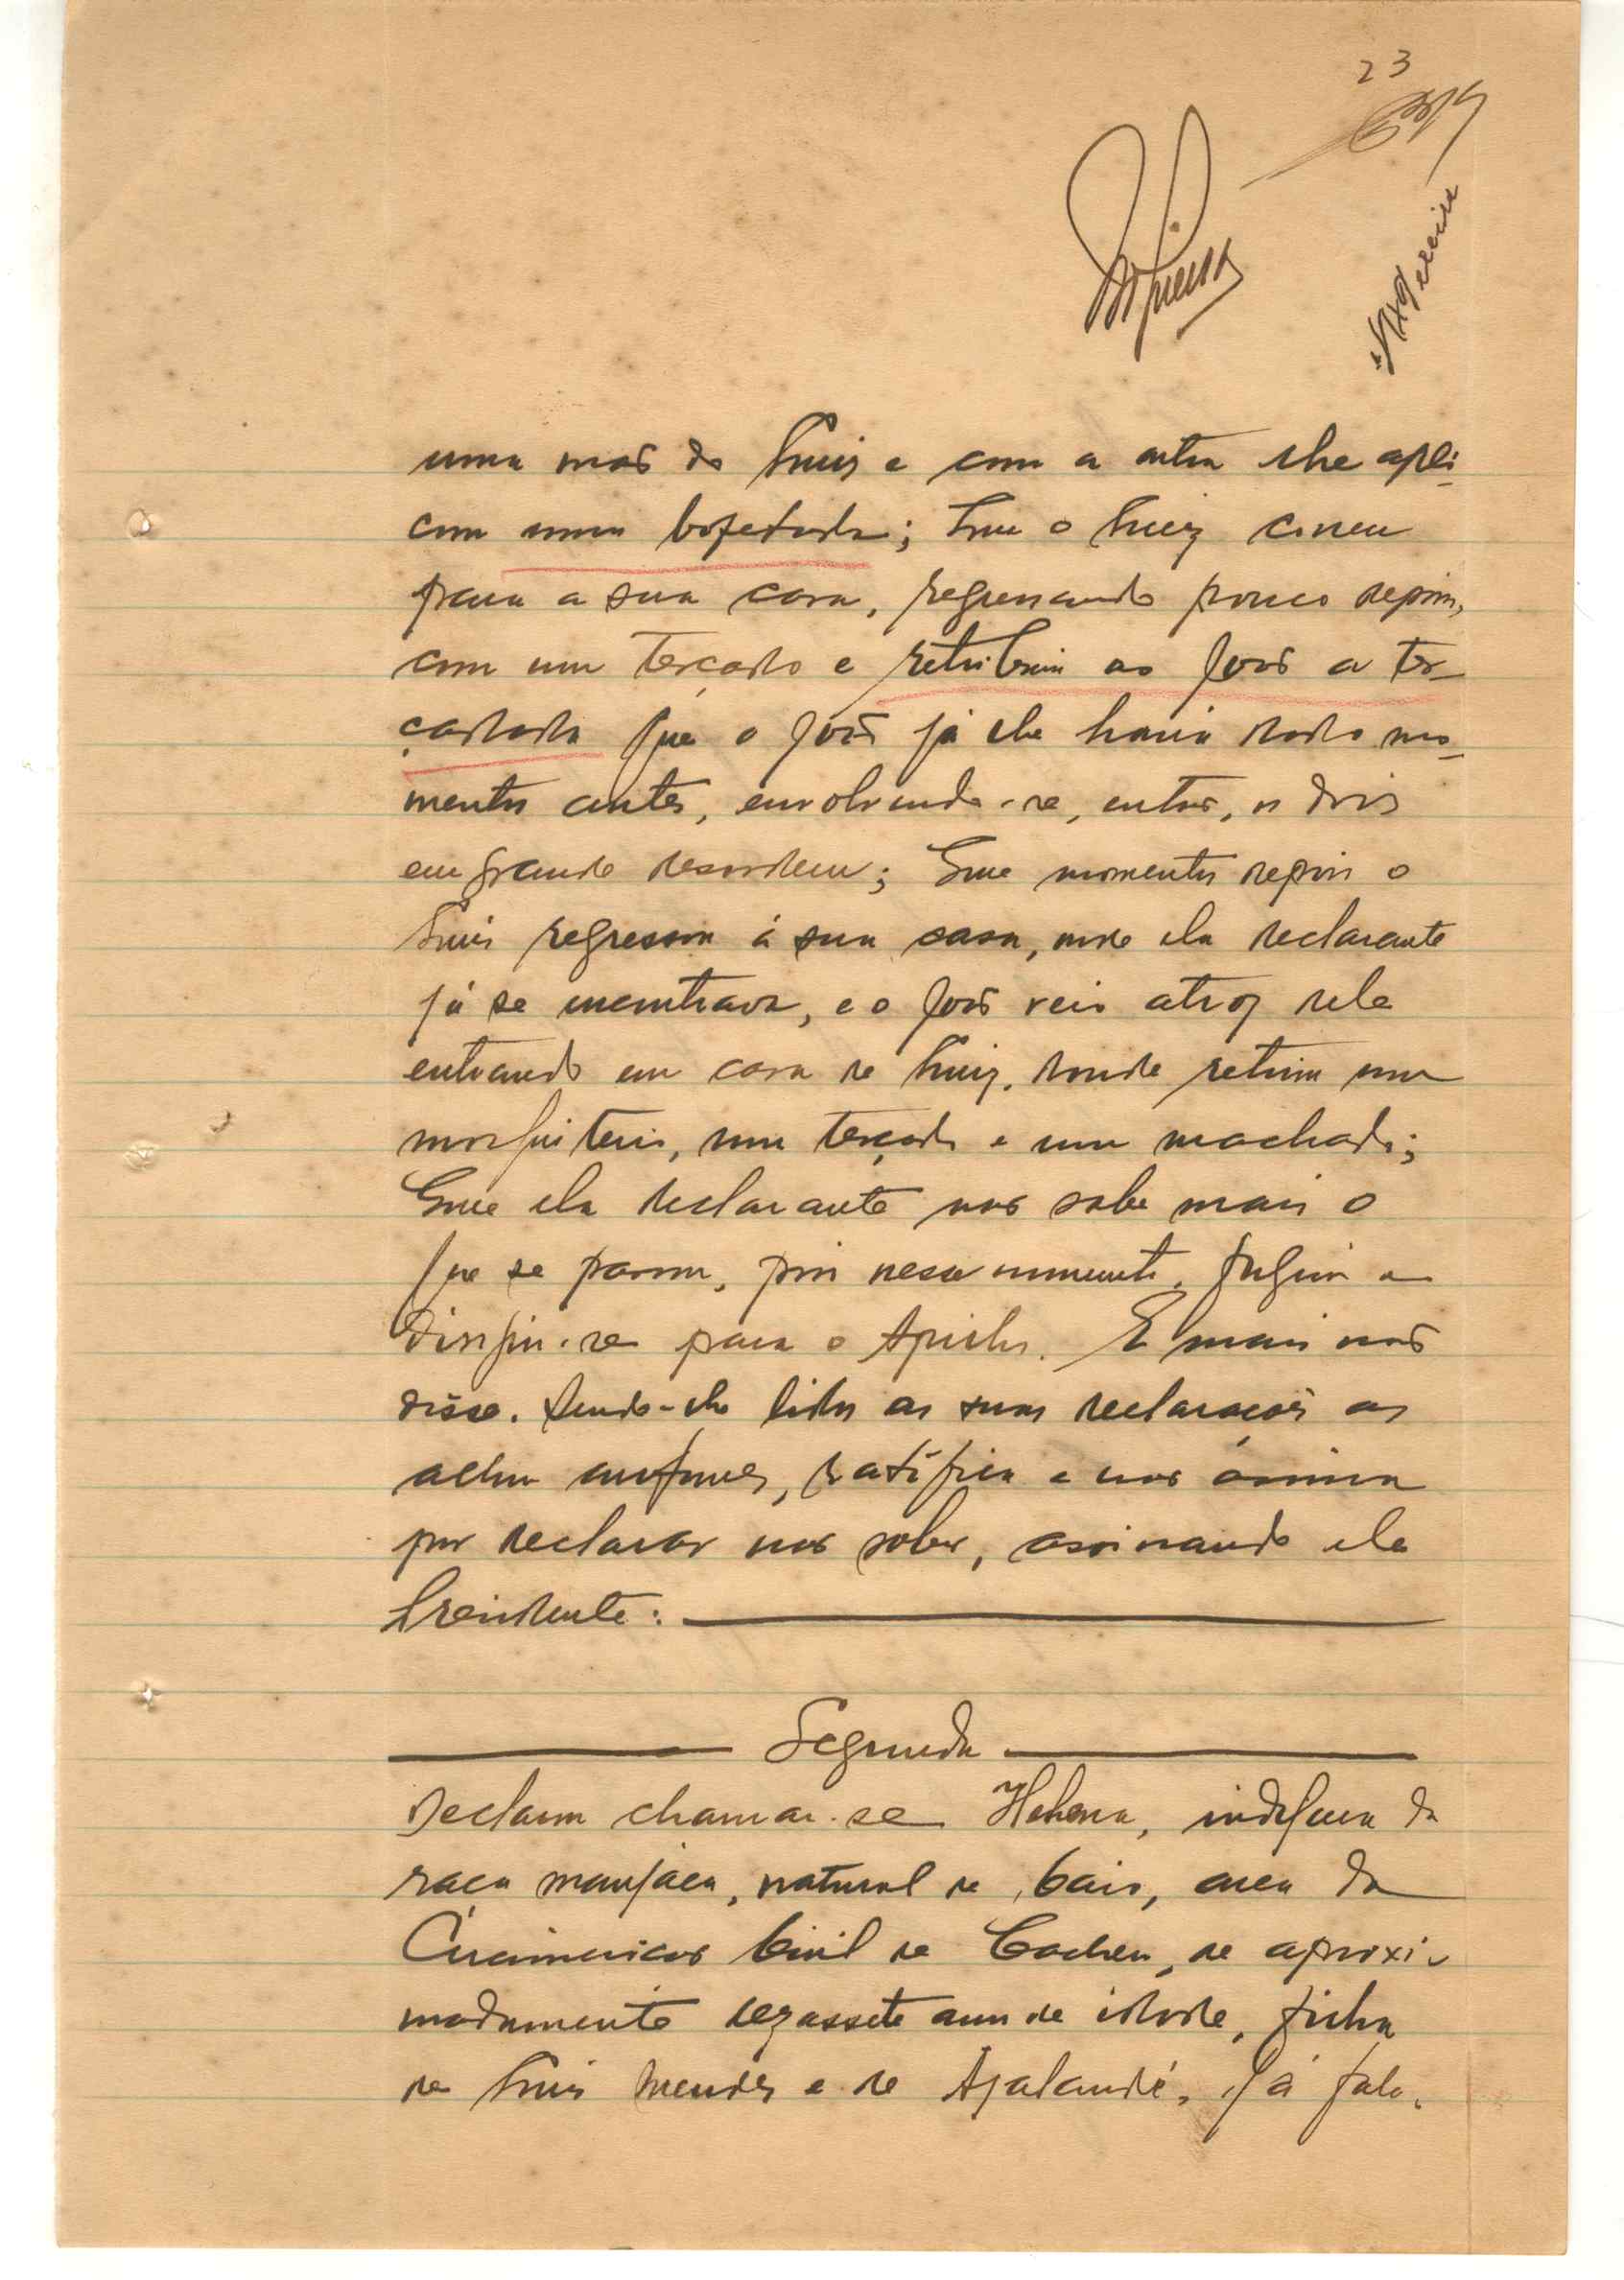 23
uma mão do Luiz e com a outra lhe apli-
cou uma bofetada; Que o Luiz correu
para a sua casa, regressando pouco depois,
com um terçado e retribuiu ao João a ter-
çadada que o João já lhe havia dado mo-
mentos antes, envolvendo-se, então, os dois
em grande desordem; Que momentos depois o
Luis regressou á sua casa, onde ela declarante
já se encontrava, e o João veio atraz dele
entrando em casa de Luiz, donde retirou um
mosquiteiro, um terçado e um machado;
Que ela declarante não sabe mais o
que se passou, pois nesse momento, fugiu e
dirigiu-se para o. E mais não
disse. Sendo-lhe lidas as suas declarações as
achou conformes, ratifica e não assina
por declarar não saber, assinando ele
Presidente:
Segunda
Declarou chamar-se Helena, indígena da
raça manjaca, natural de Caio, area da
Circunscrição Civil de Cacheu, de aproxi-
madamente dezassete anos de idade, filha
de Luis Mendes e de, já fale-